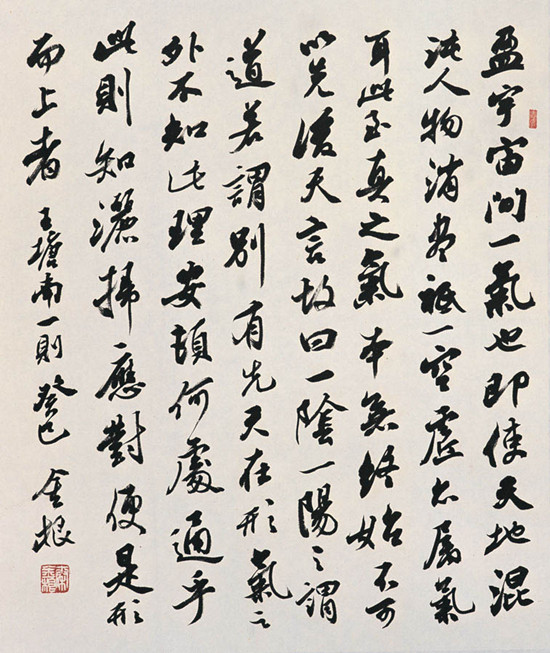 盈宇宙間一氣也即使天地混
沌人物消盡祇一空虛亦屬氣
耳此至真之氣本無終始不可
以先後天言故曰一陰一陽之謂
道若謂別有先天在形氣之
外不知此理安頓何處通乎
此則知灑掃應對便是形
而上者 王塘南一則 癸巳 金根